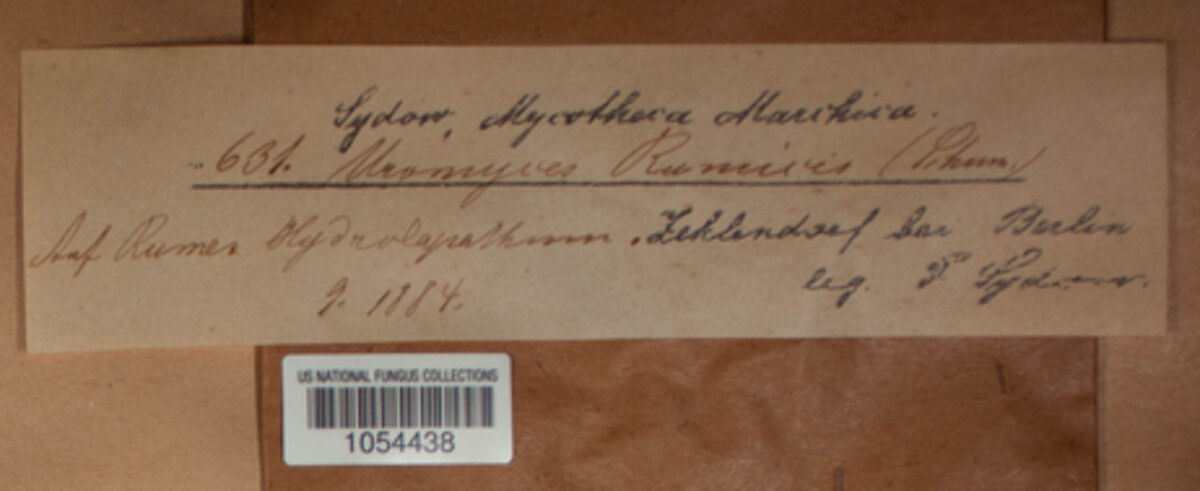 Sydow, Mycotheca Marchica.
631. Uromyces Rumicis (Schum.)
Auf Rumex Hydrolapathum. Zehlendorf bei Berlin
9. 1884.
leg. P. Sydow.
US NATIONAL FUNGUS COLLECTIONS
1054438